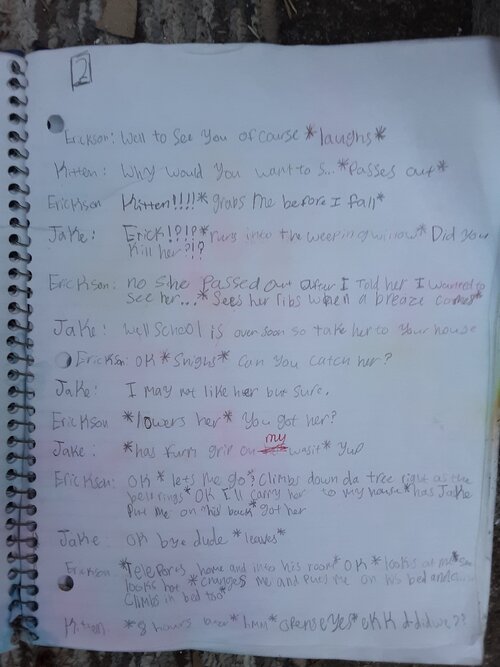 2
Erickson: Well to see you ofcourse *laughs*
Kitten: Why would you want to s... *Passes out*
Erickson Kitten!!!! *grabs me before I fall*
Jake: Erick!?!? *runs into the weeping willow* Did you
kill her?!?
Erickson: no she passed out after I told her I wanted to
see her... *Sees her ribs when a breaze comes*
Jake: Well school is over soon so take her to your house
Erickson: OK *Snighs* Can you catch her?
Jake: I may not like her but sure.
Erickson *lowers her* You got her?
my
Jake: *has furm grip on wasit* Yup
Erickson: OK *lets me go? Climbs down da tree right as the
bell rings* OK I'll carry her to my house *has Jake
Put me on his back* got her
Jake: OK bye dude *leaves*
Erickson: *Teleports home and into his room* OK *looks at me*
looks hot *changes me and puts me on his bed and....
Climbs in bed too*
Kitten *8 hours* *hmm* *opens eyes* eKK d-did we??